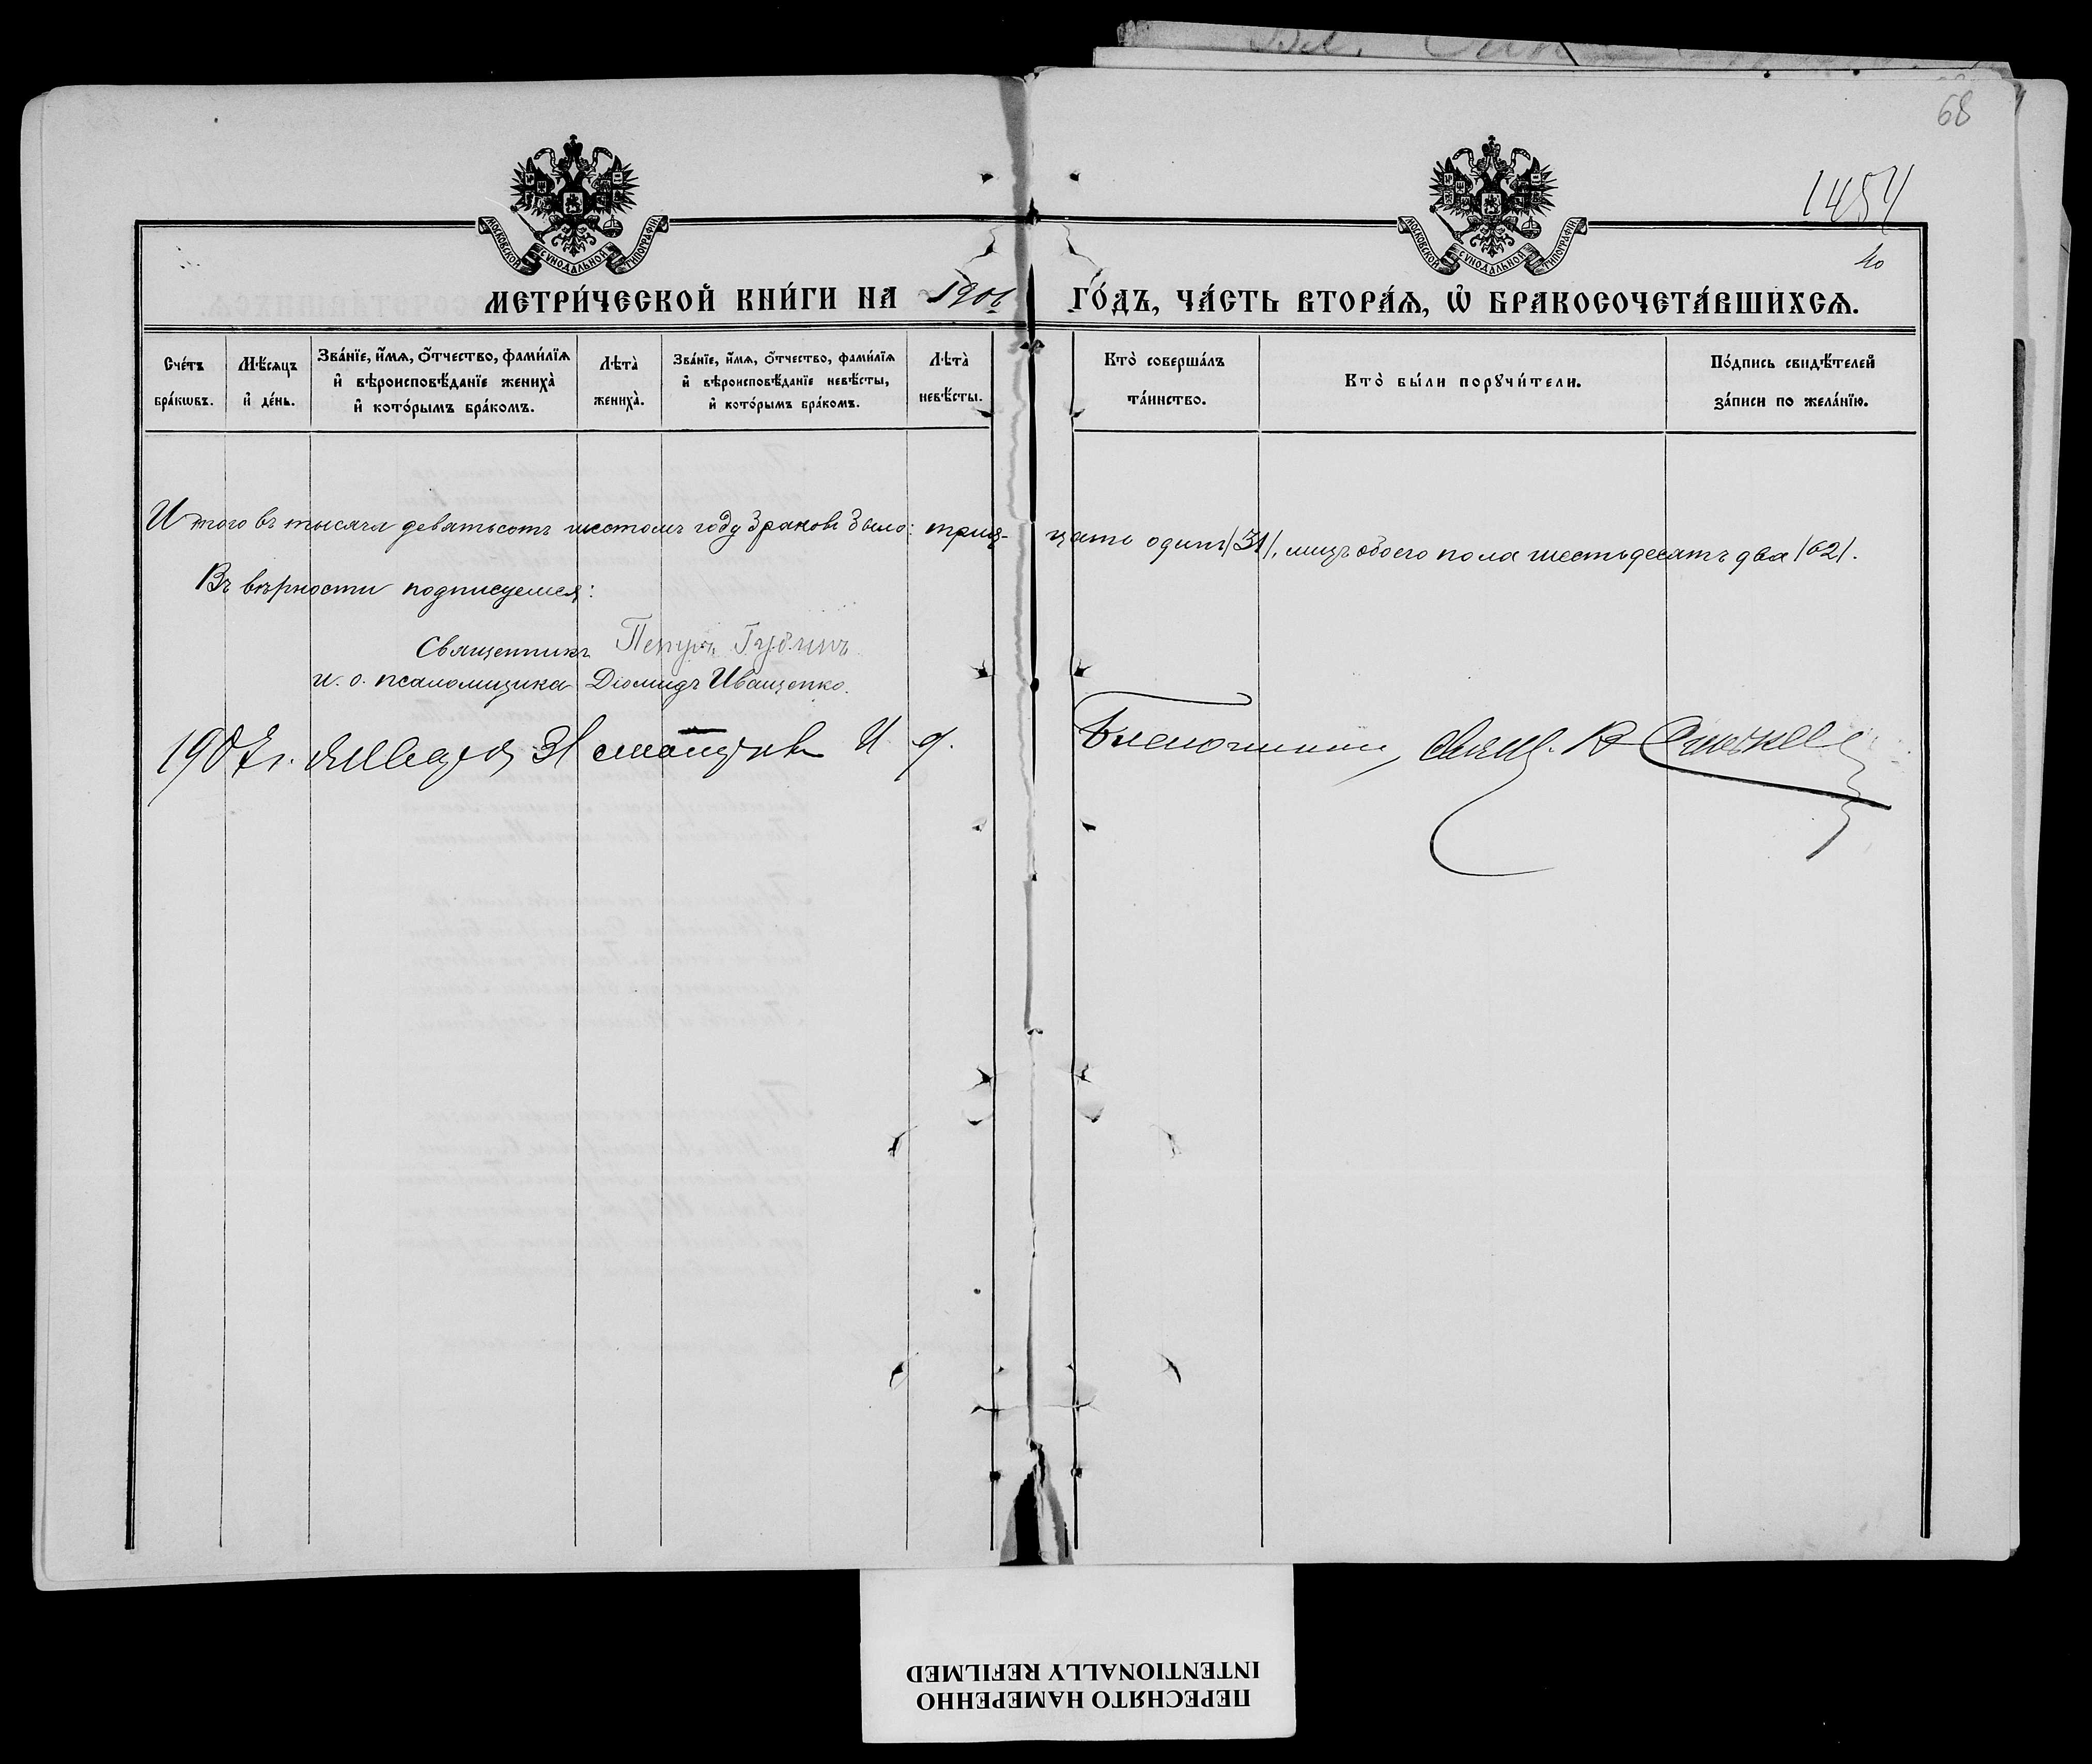 68
1454
40
МОСКОВСКОЙ СУНОДАЛЬНОЙ ТИПОГРАФІИ
МОСКОВСКОЙ СУНОДАЛЬНОЙ ТИПОГРАФІИ
МЕТРИ́ЧЕСКОЙ КНИ́ГИ НА 1906 ГО́ДЪ, ЧА́СТЬ ВТОРА́Ѧ, Ѽ БРАКОСОЧЕТА́ВШИХСѦ.
Сче́тъ бра́кѡвъ.
Мѣ́сѧцъ и҆ де́нь.
Зва́нїе, и҆́мѧ, ѻ҆́тчество, фами́лїѧ и҆ вѣроисповѣ́данїе жениха̀ и҆ кото́рымъ бра́комъ.
Лѣта̀ жениха̀.
Зва́нїе, и҆́мѧ, ѻ҆́тчество, фами́лїѧ и҆ вѣроисповѣ́данїе невѣ́сты, и҆ кото́рымъ бра́комъ.
Лѣта̀ невѣ́сты.
Кто̀ соверша́лъ та́инство.
Кто̀ бы́ли порꙋчи́тели.
По́дпись свидѣ́телей за́писи по жела́нїю.
Итого въ тысяча девятьсотъ шестомъ году браковъ было: трид- цать одинъ /31/, лицъ обоего пола шестьдесятъ два /62/.
Въ вѣрности подписуемся:
Священникъ Петръ Губинъ
и. о. псаломщика Діомидъ Иващенко.
1907 г. Января 31 И д. Благочиннаго, Свящ. В
ПЕРЕСНЯТО НАМЕРЕННО
INTENTIONALLY REFILMED